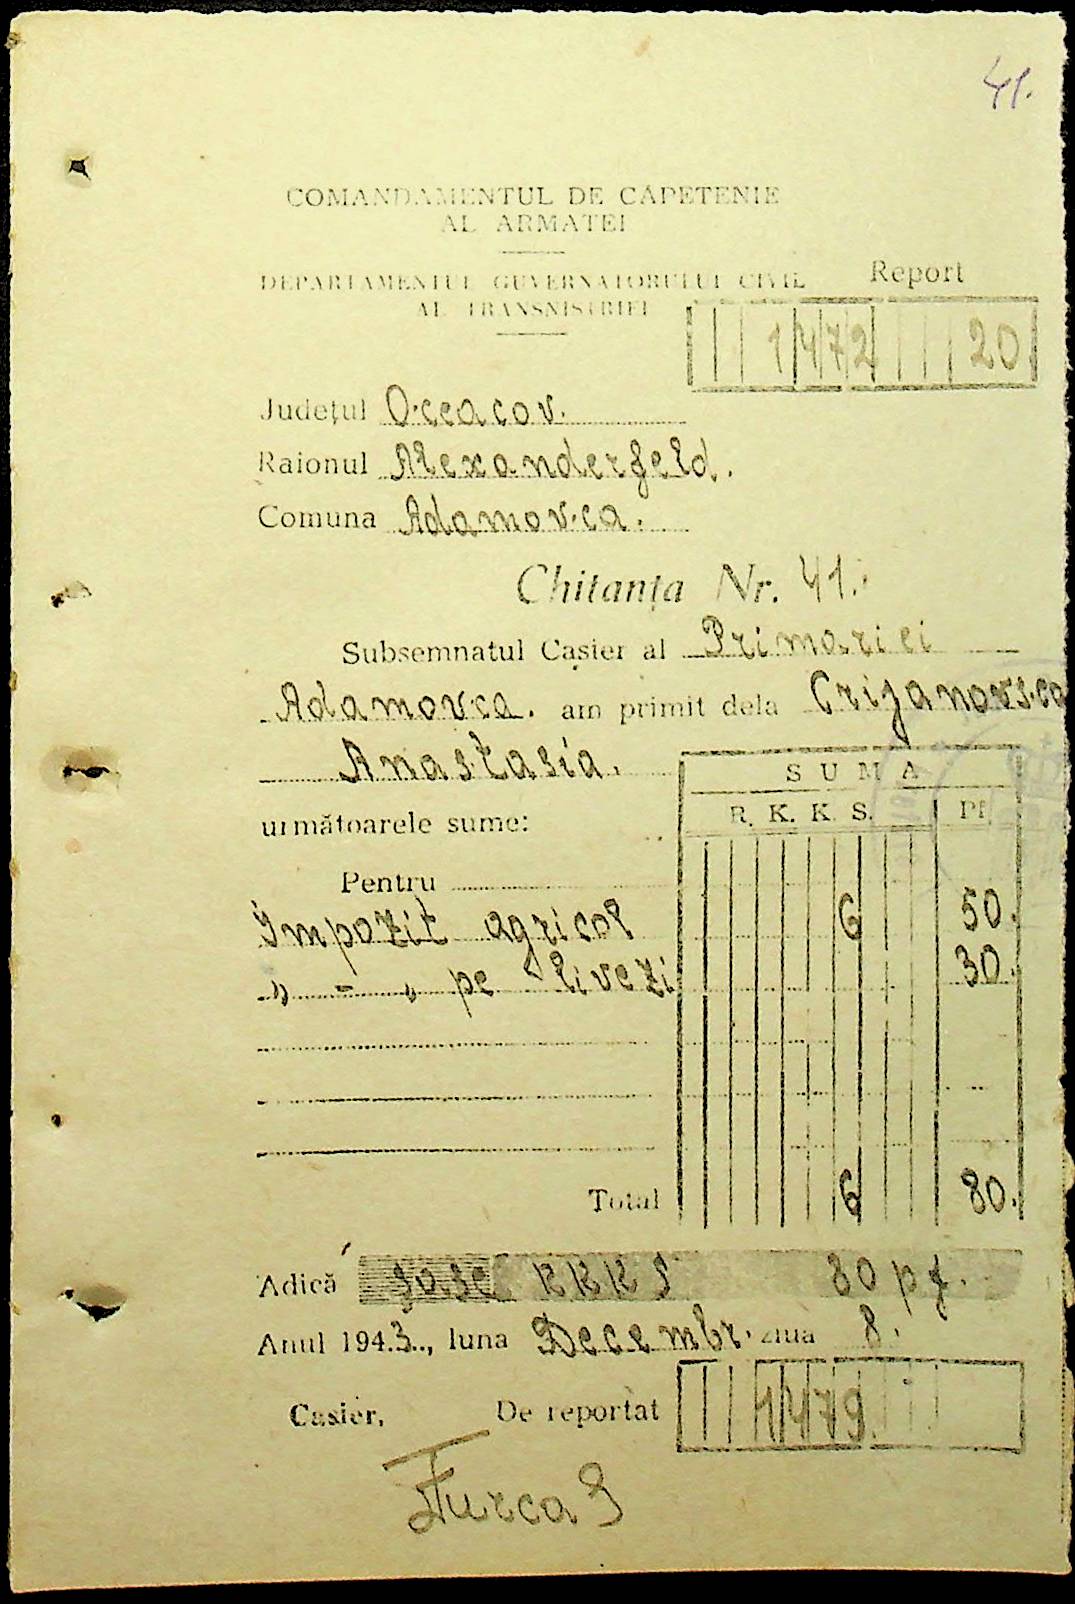 41.
COMANDAMENTUL DE CAPETENIE
AL ARMATEI
DEPARTAMENTUL GUVERNATORULUI CIVIL
AL TRANSNISTRIEI
Report
1472 20
Județul Oceacov.
Raionul Alexanderfeld.
Comuna Adamovca.
Chitanța Nr. 41.
Subsemnatul Casier al Primariei
Adamovca. am primit dela Crijanovsca
Anastasia.
următoarele sume:
SUMA
R. K. K. S. Pf.
Pentru
Impozit agricol 6 50.
„ - „ pe livezi 30.
Total 6 80.
Adică șase RKKS 80 pf.
Anul 1943., luna Decembr. ziua 8.
Casier,
De reportat 1479.
Turca S